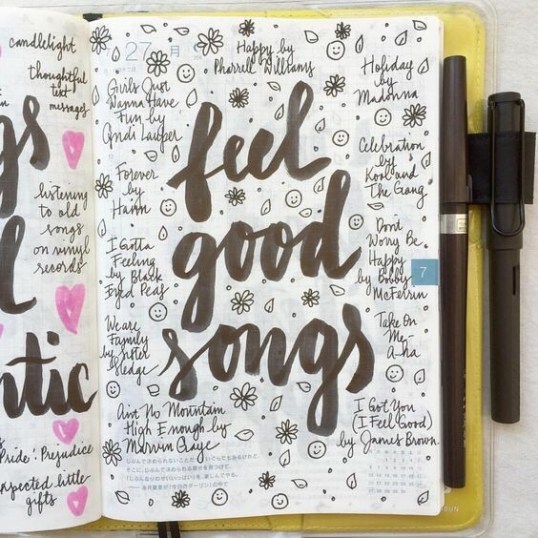 candlelight
thoughtful
text
messages
gs
listening
to old
songs
on vinyl
records
l
ntic
Pride & Prejudice
unexpected little
gifts
27 月
Happy by
Pharrell Williams
Girls Just
Wanna Have
Fun by
Cyndi Lauper
Holiday
by
Madonna
feel
good
songs
Forever
by
Haim
Celebration
by
Kool and
The Gang
I Gotta
Feeling
by Black
Eyed Peas
Dont
Worry Be
Happy
by Bobby
McFerrin
7
We are
Family
by Sister
Sledge
Take On
Me-
A-ha
Aint No Mountain
High Enough by
Marvin Gaye
I Got You
(I Feel Good)
by James Brown